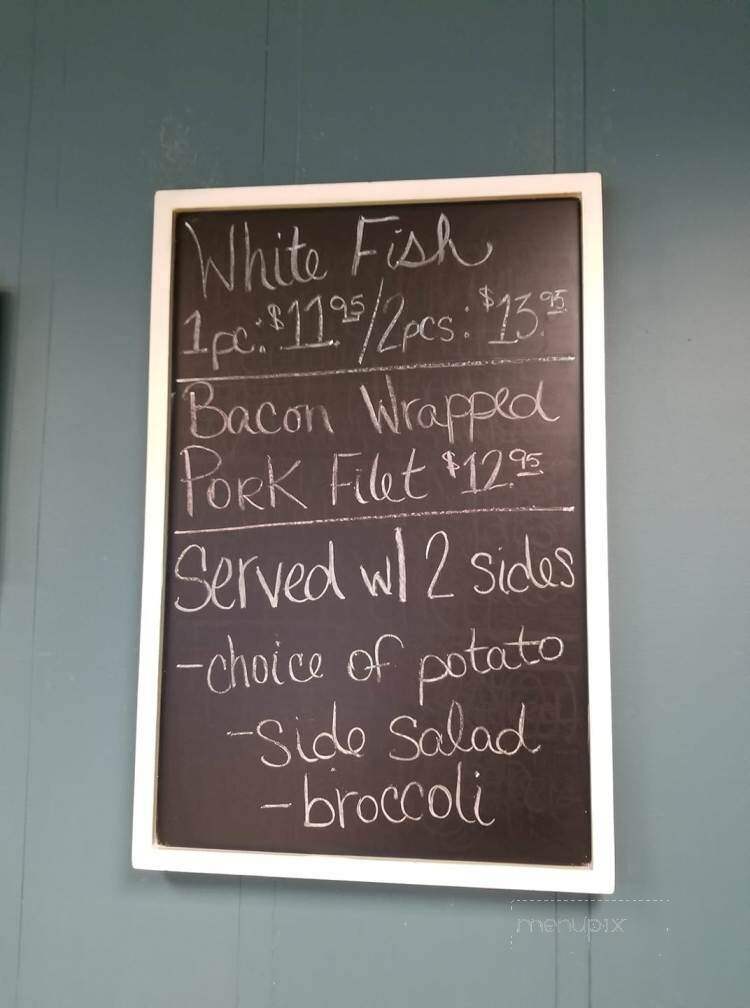 White Fish
1pc: $11.95/2pcs: $13.95
Bacon Wrapped
Pork Filet $12.95
Served w/ 2 sides
-choice of potato
-Side Salad
-broccoli
menupix